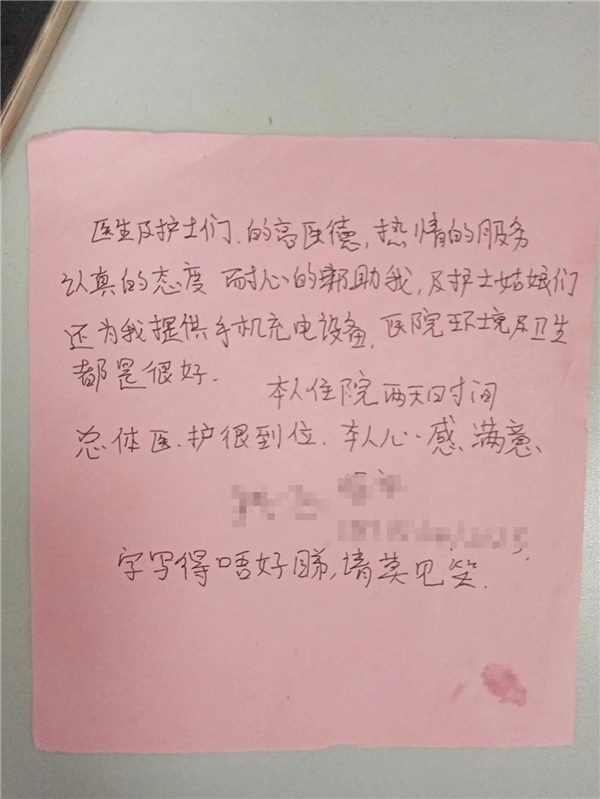 医生及护士们、的高医德,热情的服务
认真的态度 耐心的帮助我,及护士姑娘们
还为我提供手机充电设备,医院环境及卫生
都是很好.
本人住院两天时间
总体医、护很到位.本人心感满意、
字写得唔好睇,请莫见笑.